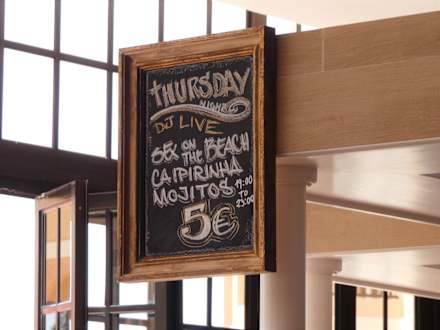 THURSDAY
NIGHT
DJ LIVE
SEX ON
THE BEACH
CAIPIRINHA
MOJITOS 19:00
TO
23:00
5€